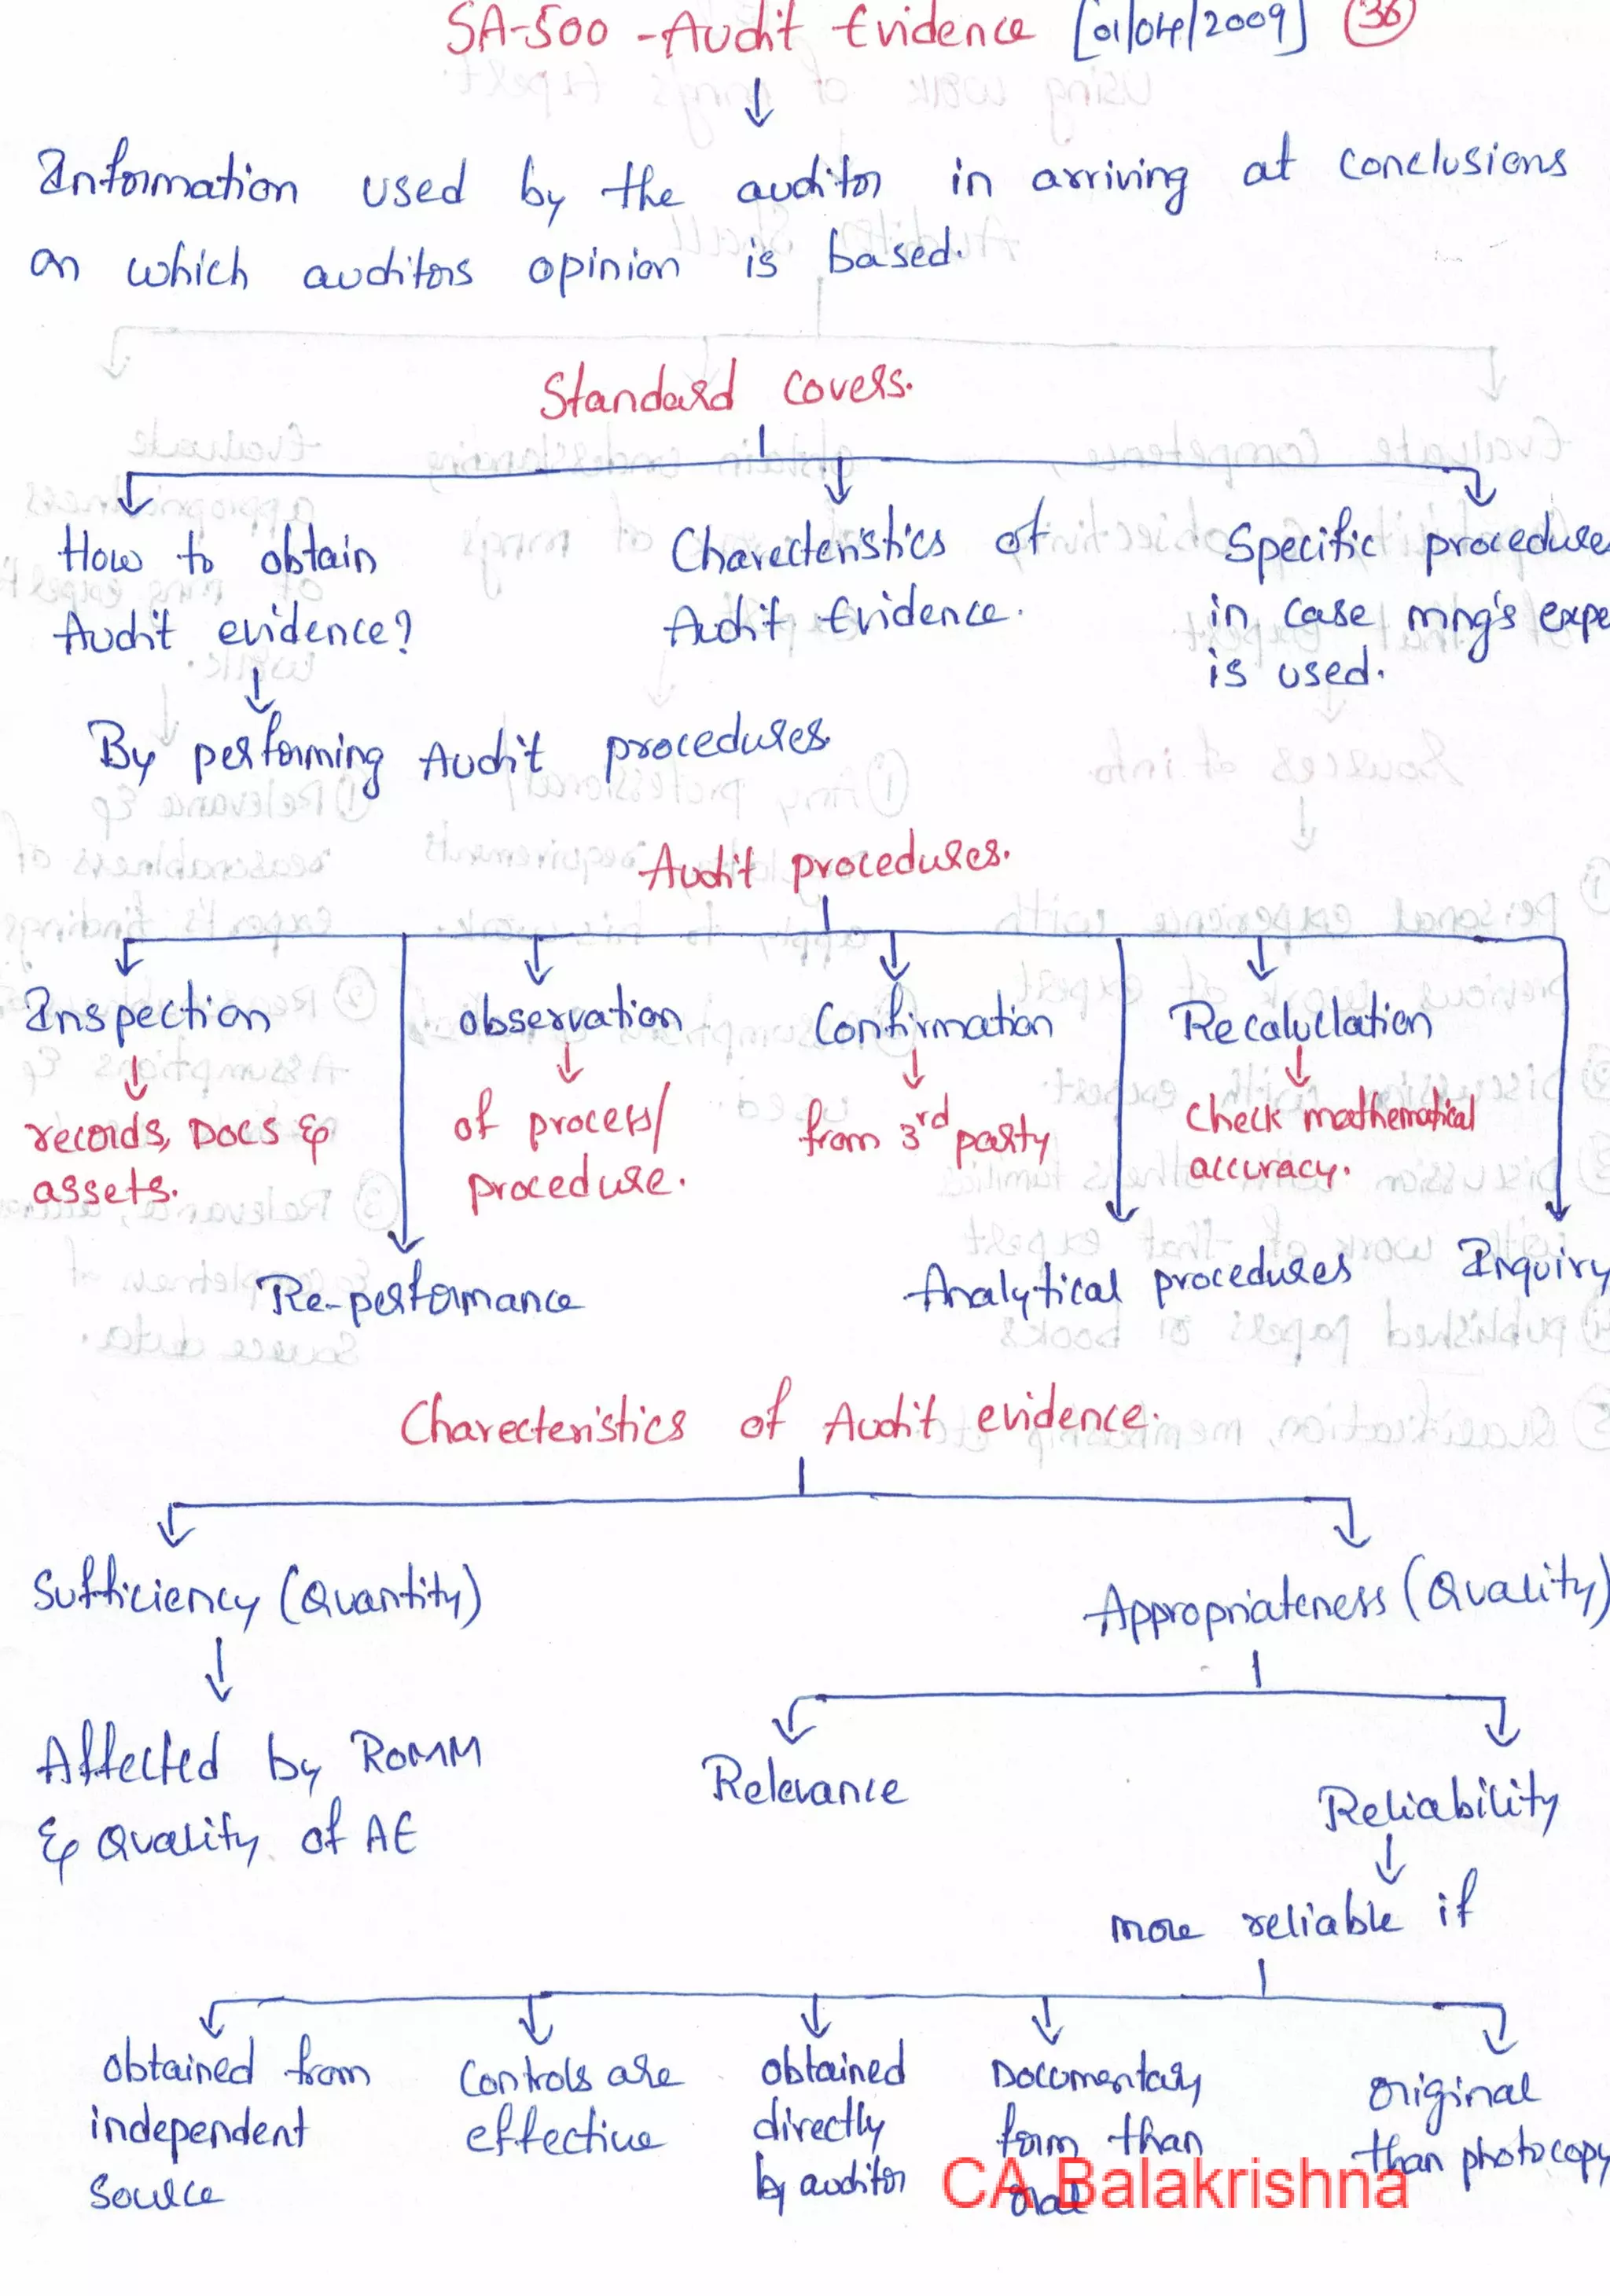 SA-500 - Audit Evidence [01/04/2009] 36
Information used by the auditor in arriving at conclusions
on which auditors opinion is based.
Standard covers.
How to obtain
Audit evidence?
By performing Audit procedures
Charecteristics of
Audit Evidence.
Specific procedure
in case mng's expe
is used.
Audit procedures.
Inspection
records, Docs &
assets.
Re-performance
observation
of process/
procedure.
Confirmation
from 3rd party
Analytical procedures
Recaluclation
Check mathematical
accuracy.
Inquiry
Charecteristics of Audit evidence.
Sufficiency (Quantity)
Affected by ROMM
& Quality of AE
Appropriateness (Quality)
Relevance
Reliability
more reliable if
obtained from
independent
source
Controls are
effective
obtained
directly
by auditor
Documentary
form than
oral
original
than photocopy
CA Balakrishna